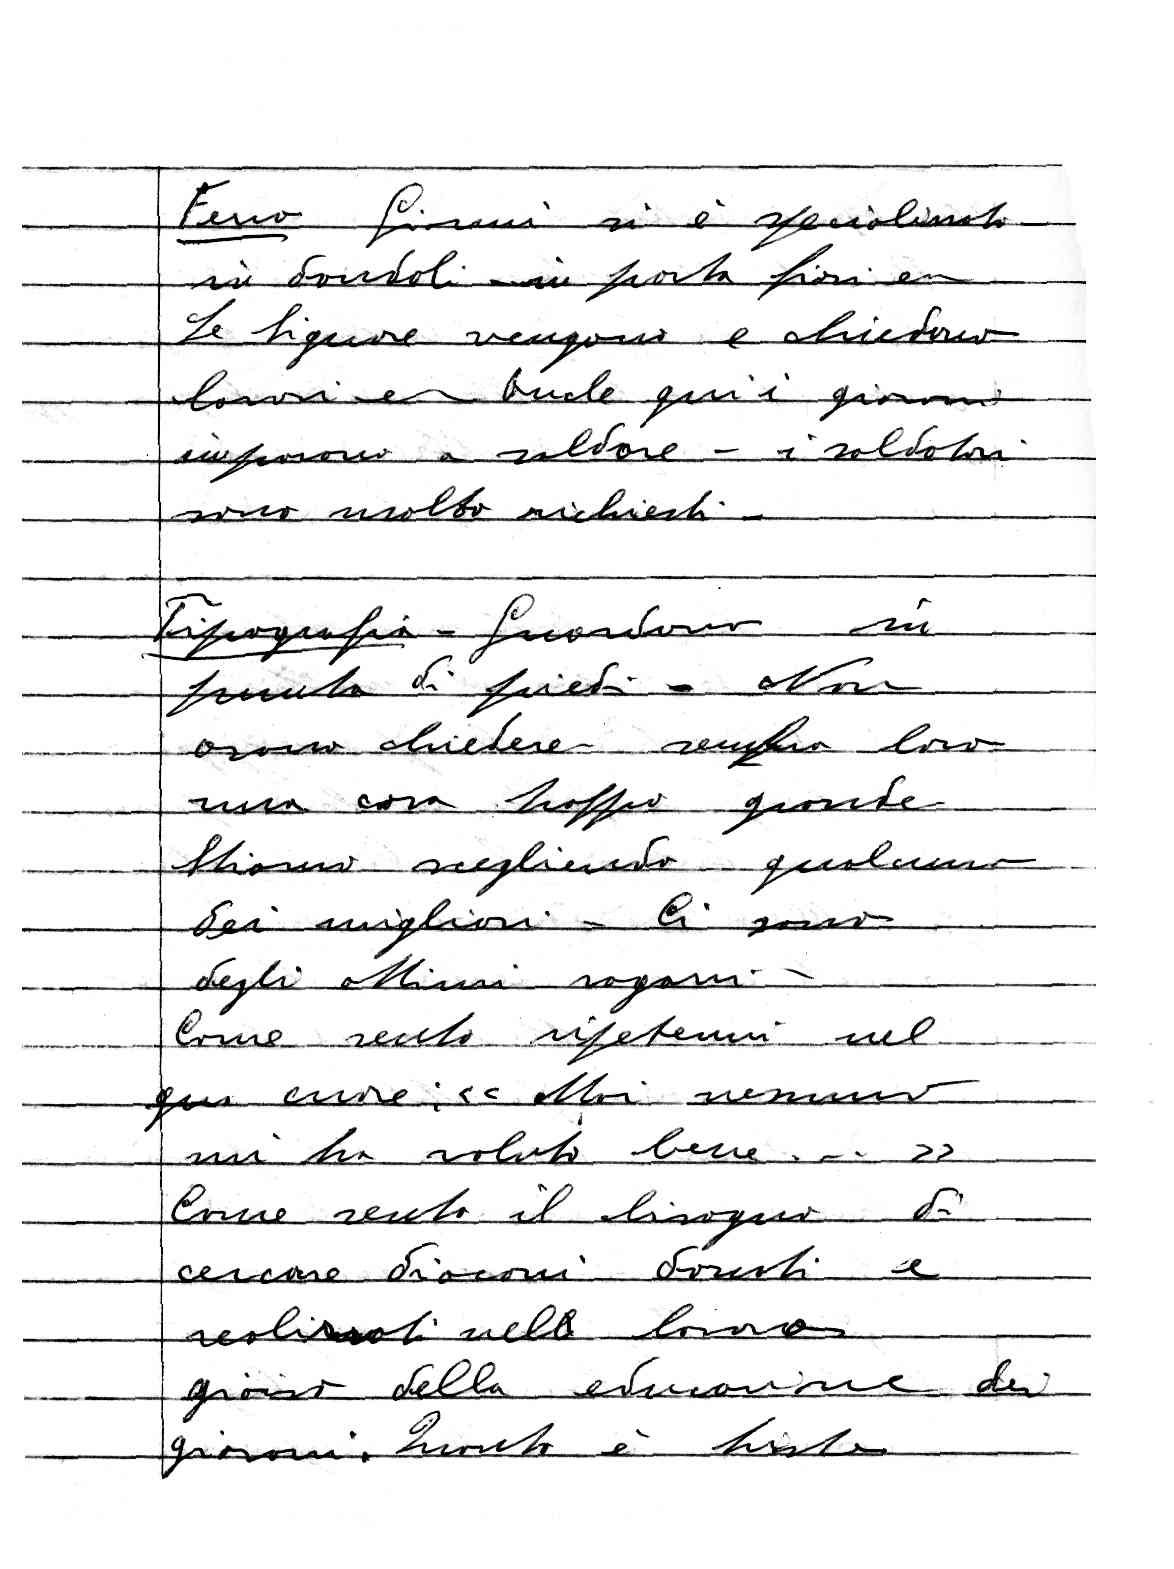 Ferro Gianni si è specializzato
in dondoli - in porta fiori e
Le Signore vengono e chiedono
lavori e Anche qui i giovani
imparano a saldare - i saldatori
sono molto richiesti -
Tipografia - Guardano in
punta di piedi - Non
osano chiedere - sembra loro
una cosa troppo grande
Stiamo scegliendo qualcuno
dei migliori - Ci sono
degli ottimi ragazzi -
Come sento ripetermi nel
cuore : << Mai nessuno
mi ha voluto bene . - . >>
Come sento il bisogno di
cercare diaconi donati e
realizzati nella
gioia della educazione dei
giovani. Quanto è triste